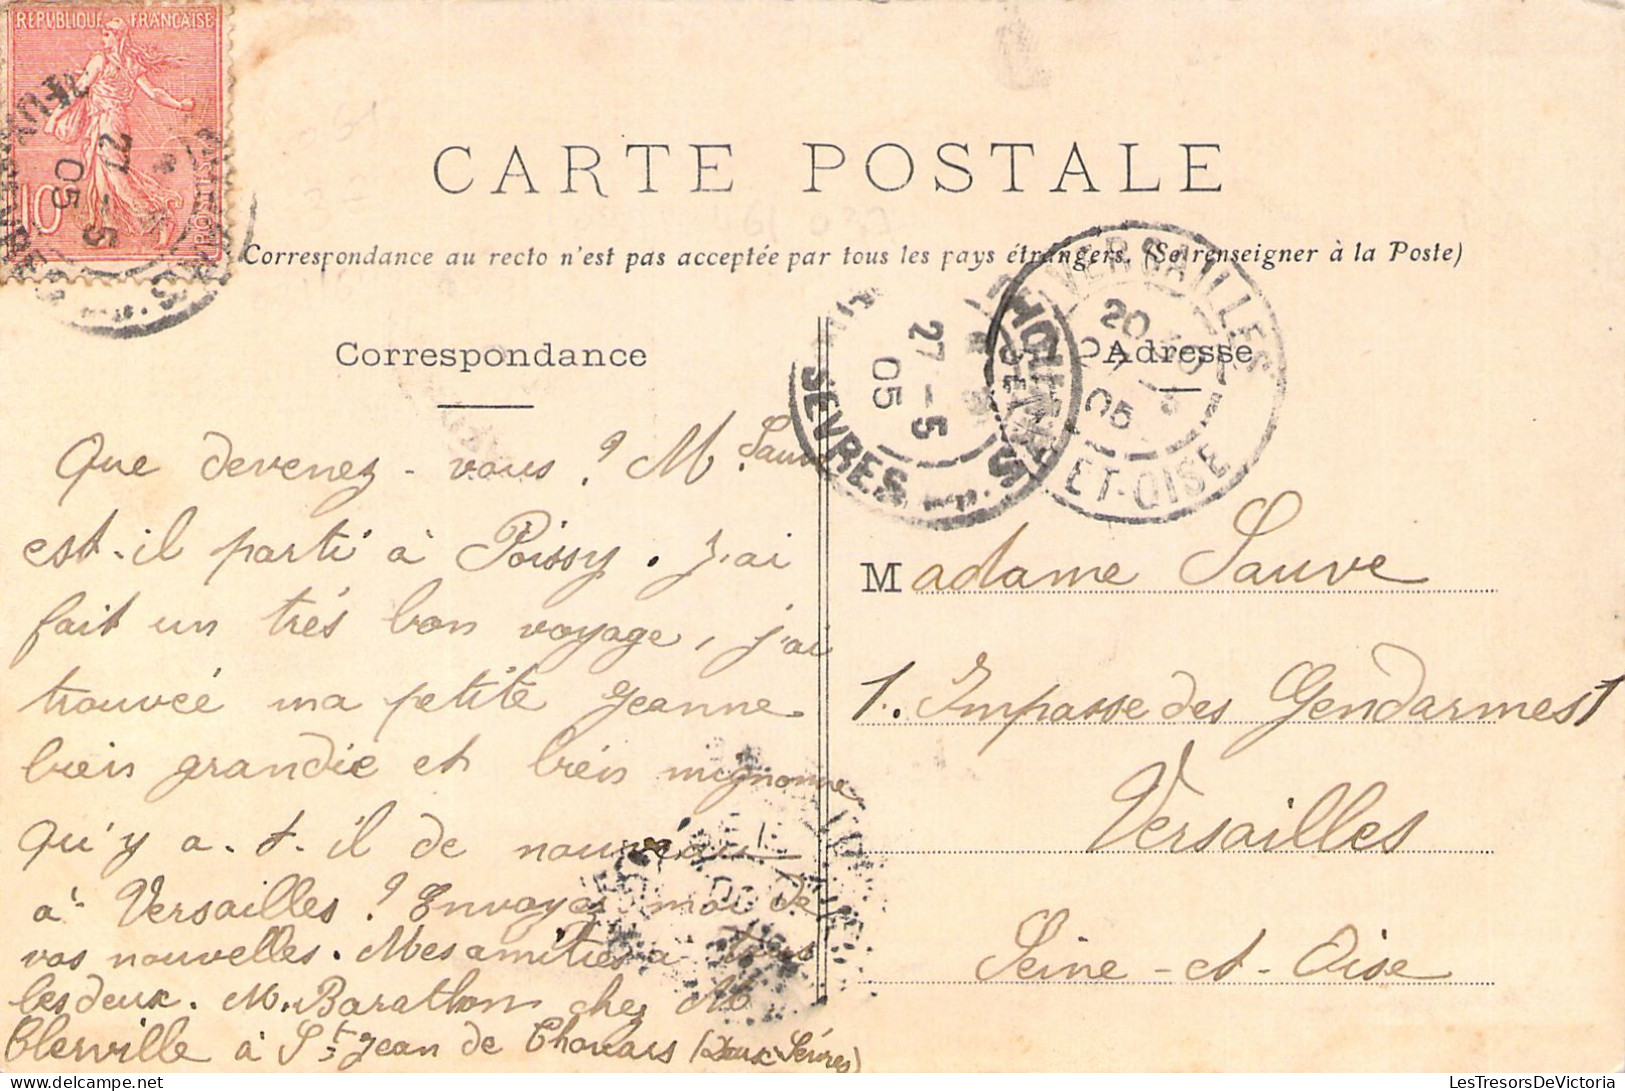 REPUBLIQUE FRANÇAISE
10
POSTES
27 - 5
05
CARTE POSTALE
Correspondance au recto n'est pas acceptée par tous les pays étrangers. (Se renseigner à la Poste)
Correspondance
Adresse
27 - 5
05
SEVRES
VERSAILLES
20
05
ET-OISE
Que devenez-vous ? M. Sauve
est-il parti à Poissy. J'ai
fait un trés bon voyage, j'ai
trouvée ma petite Jeanne
bien grandie et bien mignonne
Qu'y a-t-il de nouveau
à Versailles ? Envoyez moi de
vos nouvelles. Mes amitiés a tous
les deux. M. Barathon chez M
Clerville à St Jean de Thouars (Deux Sévres)
Madame Sauve
1. Impasse des Gendarmes 1
Versailles
Seine-et-Oise
LesTresorsDeVictoria